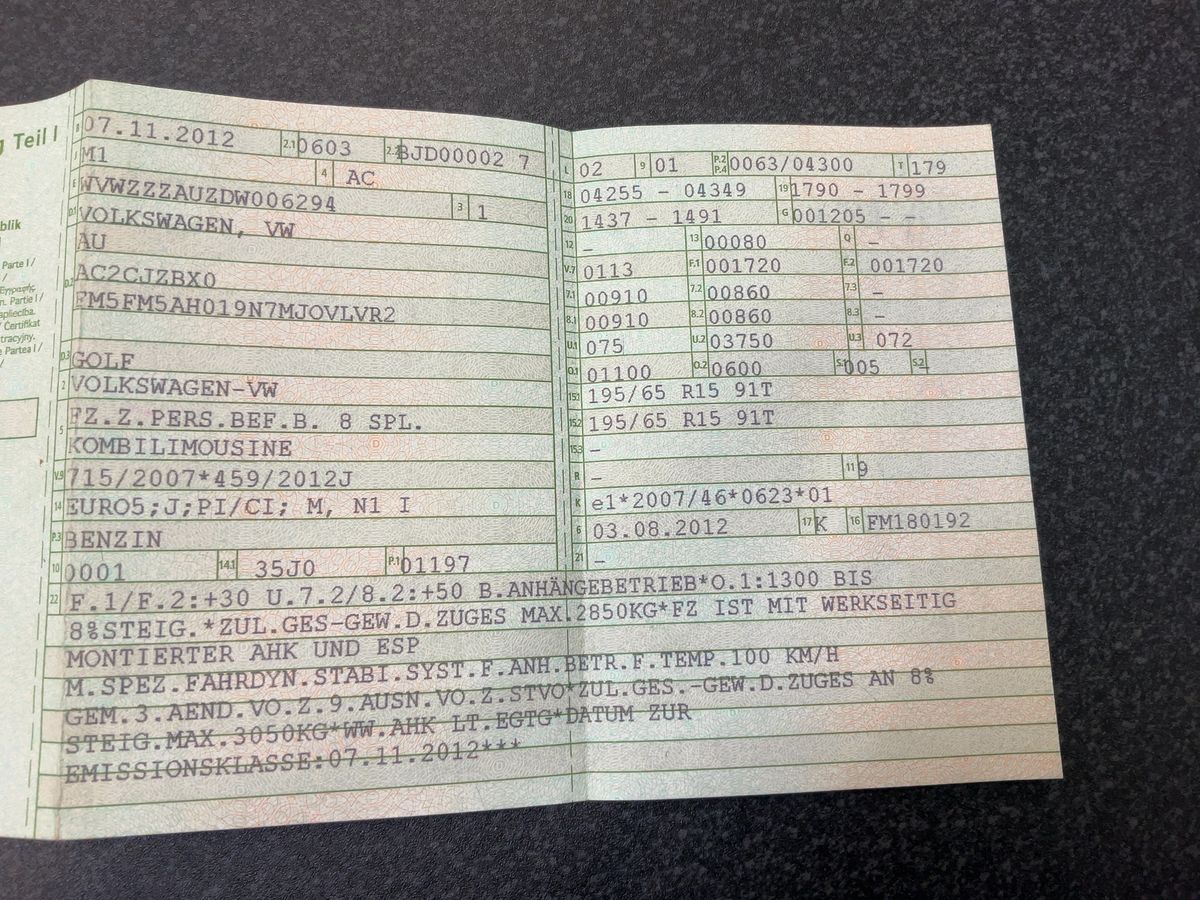 g Teil I
blik
Parte I /
n. Partie I /
apliecība.
/ Certifikat
tracyjny.
e Partea I /
B 07.11.2012 2.1 0603 2.2 BJD00002 7
J M1 4 AC
E WVWZZZAUZDW006294 3 1
D.1 VOLKSWAGEN, VW
AU
D.2 AC2CJZBX0
FM5FM5AH019N7MJOVLVR2
D.3 GOLF
2 VOLKSWAGEN-VW
5 FZ.Z.PERS.BEF.B. 8 SPL.
KOMBILIMOUSINE
V.9 715/2007*459/2012J
14 EURO5;J;PI/CI; M, N1 I
P.3 BENZIN
10 0001 14.1 35J0 P.1 01197
L 02 9 01 P.2 P.4 0063/04300 T 179
18 04255 - 04349 19 1790 - 1799
20 1437 - 1491 G 001205 - -
12 - 13 00080 Q -
V.7 0113 F.1 001720 F.2 001720
7.1 00910 7.2 00860 7.3 -
8.1 00910 8.2 00860 8.3 -
U.1 075 U.2 03750 U.3 072
O.1 01100 O.2 0600 S.1 005 S.2 -
15.1 195/65 R15 91T
15.2 195/65 R15 91T
15.3 -
R - 11 9
K e1*2007/46*0623*01
6 03.08.2012 17 K 16 FM180192
21 -
22 F.1/F.2:+30 U.7.2/8.2:+50 B.ANHÄNGEBETRIEB*O.1:1300 BIS
8%STEIG.*ZUL.GES-GEW.D.ZUGES MAX.2850KG*FZ IST MIT WERKSEITIG
MONTIERTER AHK UND ESP
M.SPEZ.FAHRDYN.STABI.SYST.F.ANH.BETR.F.TEMP.100 KM/H
GEM.3.AEND.VO.Z.9.AUSN.VO.Z.STVO*ZUL.GES.-GEW.D.ZUGES AN 8%
STEIG.MAX.3050KG*WW.AHK LT.EGTG*DATUM ZUR
EMISSIONSKLASSE:07.11.2012***